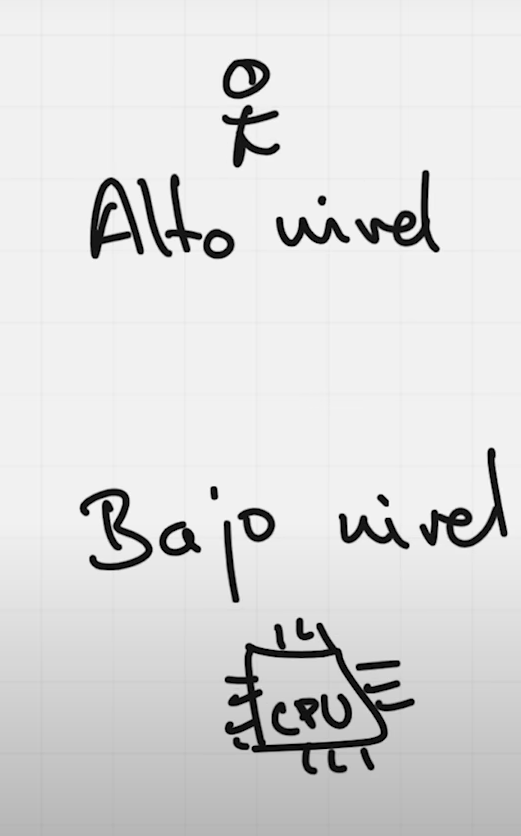 Alto nivel
Bajo nivel
CPU